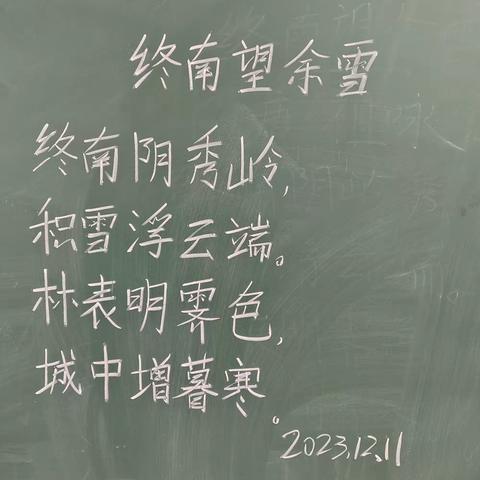 终南望余雪
终南阴秀岭,
积雪浮云端。
林表明霁色,
城中增暮寒。
2023.12.11